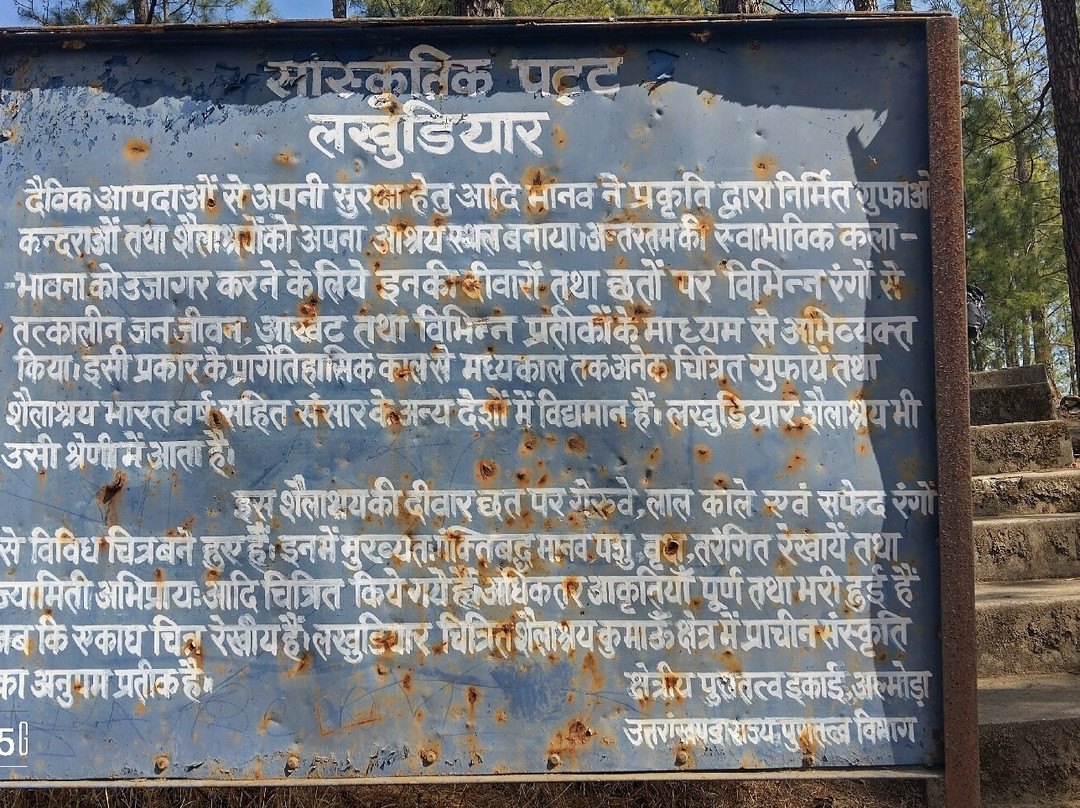 सांस्कृतिक पट्ट
लखुडियार
दैविक आपदाओं से अपनी सुरक्षा हेतु आदि मानव ने प्रकृति द्वारा निर्मित गुफाओ
कन्दराओं तथा शैलाश्रयों को अपना आश्रय स्थल बनाया। अन्तरतम की स्वाभाविक कला-
-भावना को उजागर करने के लिये इनकी दीवारों तथा छतों पर विभिन्न रंगों से
तत्कालीन जन जीवन, आखेट तथा विभिन्न प्रतीकों के माध्यम से अभिव्यक्त
किया। इसी प्रकार के प्रागैतिहासिक काल से मध्यकाल तक अनेक चित्रित गुफायें तथा
शैलाश्रय भारत वर्ष सहित संसार के अन्य देशों में विद्यमान हैं। लखुडियार शैलाश्रय भी
उसी श्रेणी में आता है।
इस शैलाश्रय की दीवार छत पर गेरूवे, लाल काले एवं सफेद रंगों
से विविध चित्र बने हुए हैं। इनमें मुख्यतः पंक्तिबद्ध मानव पशु वृक्ष, तरंगित रेखायें तथा
ज्यामिती अभिप्रायः आदि चित्रित किये गये हैं। अधिकतर आकृतियाँ पूर्ण तथा भरी हुई हैं
जब कि एकाध चित्र रेखीय हैं। लखुडियार चित्रित शैलाश्रय कुमाऊँ क्षेत्र में प्राचीन संस्कृति
का अनुपम प्रतीक है।
क्षेत्रीय पुरातत्व इकाई, अल्मोड़ा
उत्तराखण्ड राज्य पुरातत्व विभाग
5G